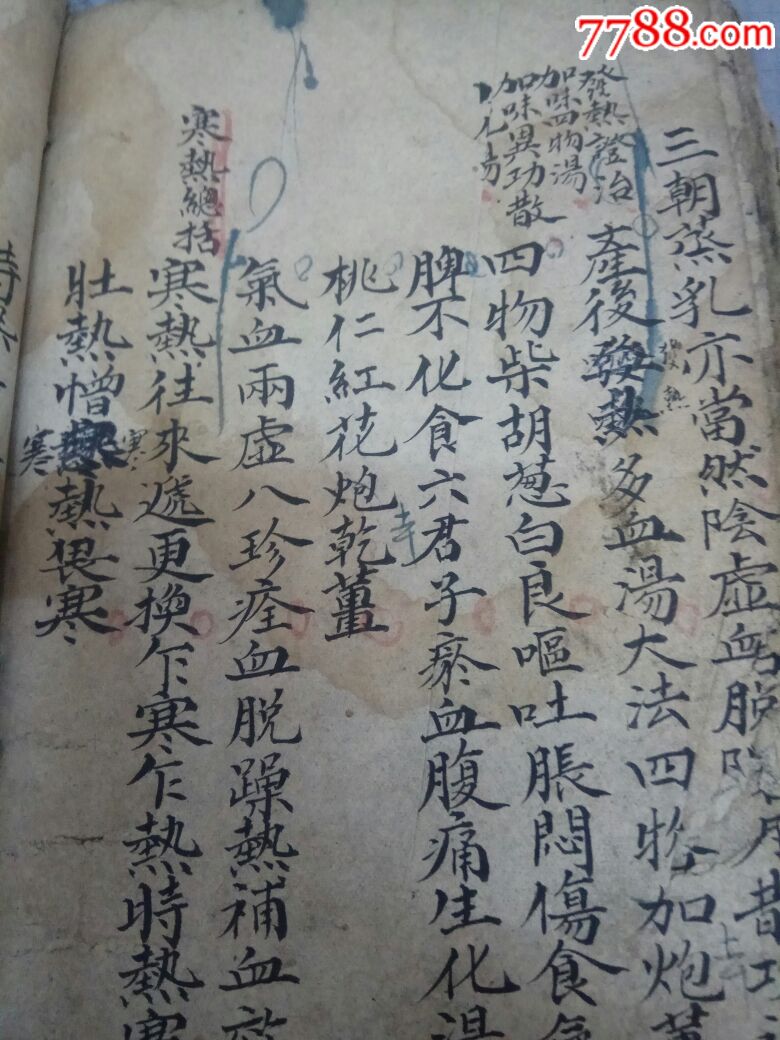 7788.com
三朝蒸乳亦當然陰虛血脱陰
發熱證治
加味四物湯
加味異功散
產後發熱多血湯大法四物加炮薑
發熱
四物柴胡葱白良嘔吐脹悶傷食
脾不化食六君子瘀血腹痛生化湯
桃仁紅花炮乾薑
氣血兩虛八珍痊血脱躁熱補血
寒熱總括
寒熱往來遞更換乍寒乍熱時熱寒
壯熱憎寒熱畏寒
寒
寒